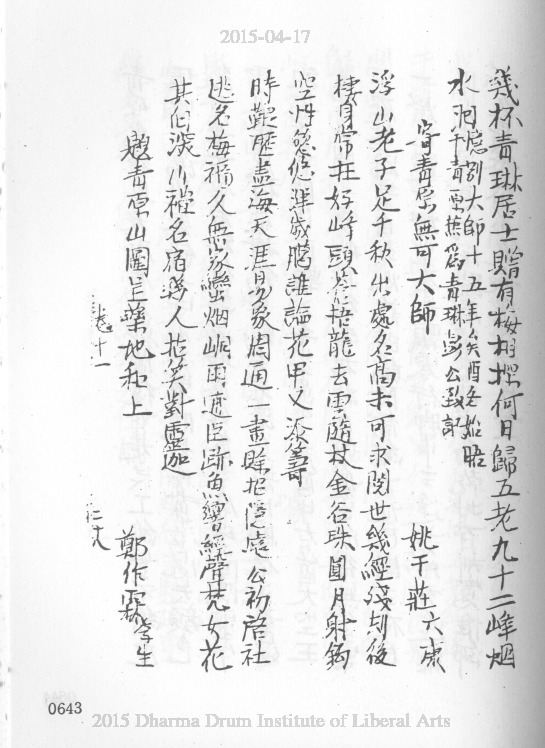 2015-04-17
幾杯青琳居士贈有梅相撰何日歸五老九十二峰烟
水洞憶別大師十五年癸酉冬始晤
于青原蕉為青琳彭公致訊
寄青原無可大師
姚千莊六康
浮山老子足千秋出處名高未可求閱世幾經殘刼後
棲身常在好峰頭茗
龍去雲隨杖金谷珠圓月射鈎
空性悠悠渾歲臘誰論花甲又添籌
時艱歷盡海天涯易象周通一畫賒
隱處公初啓社
逃名梅福久無家蠻烟峒雨逋臣跡魚嚮經聲梵女花
其伯淡川禪名宿勝人
笑對靈迦
題青原山圖呈藥地和上
鄭作霖學生
卷十一
二十八
0643
2015 Dharma Drum Institute of Liberal Arts